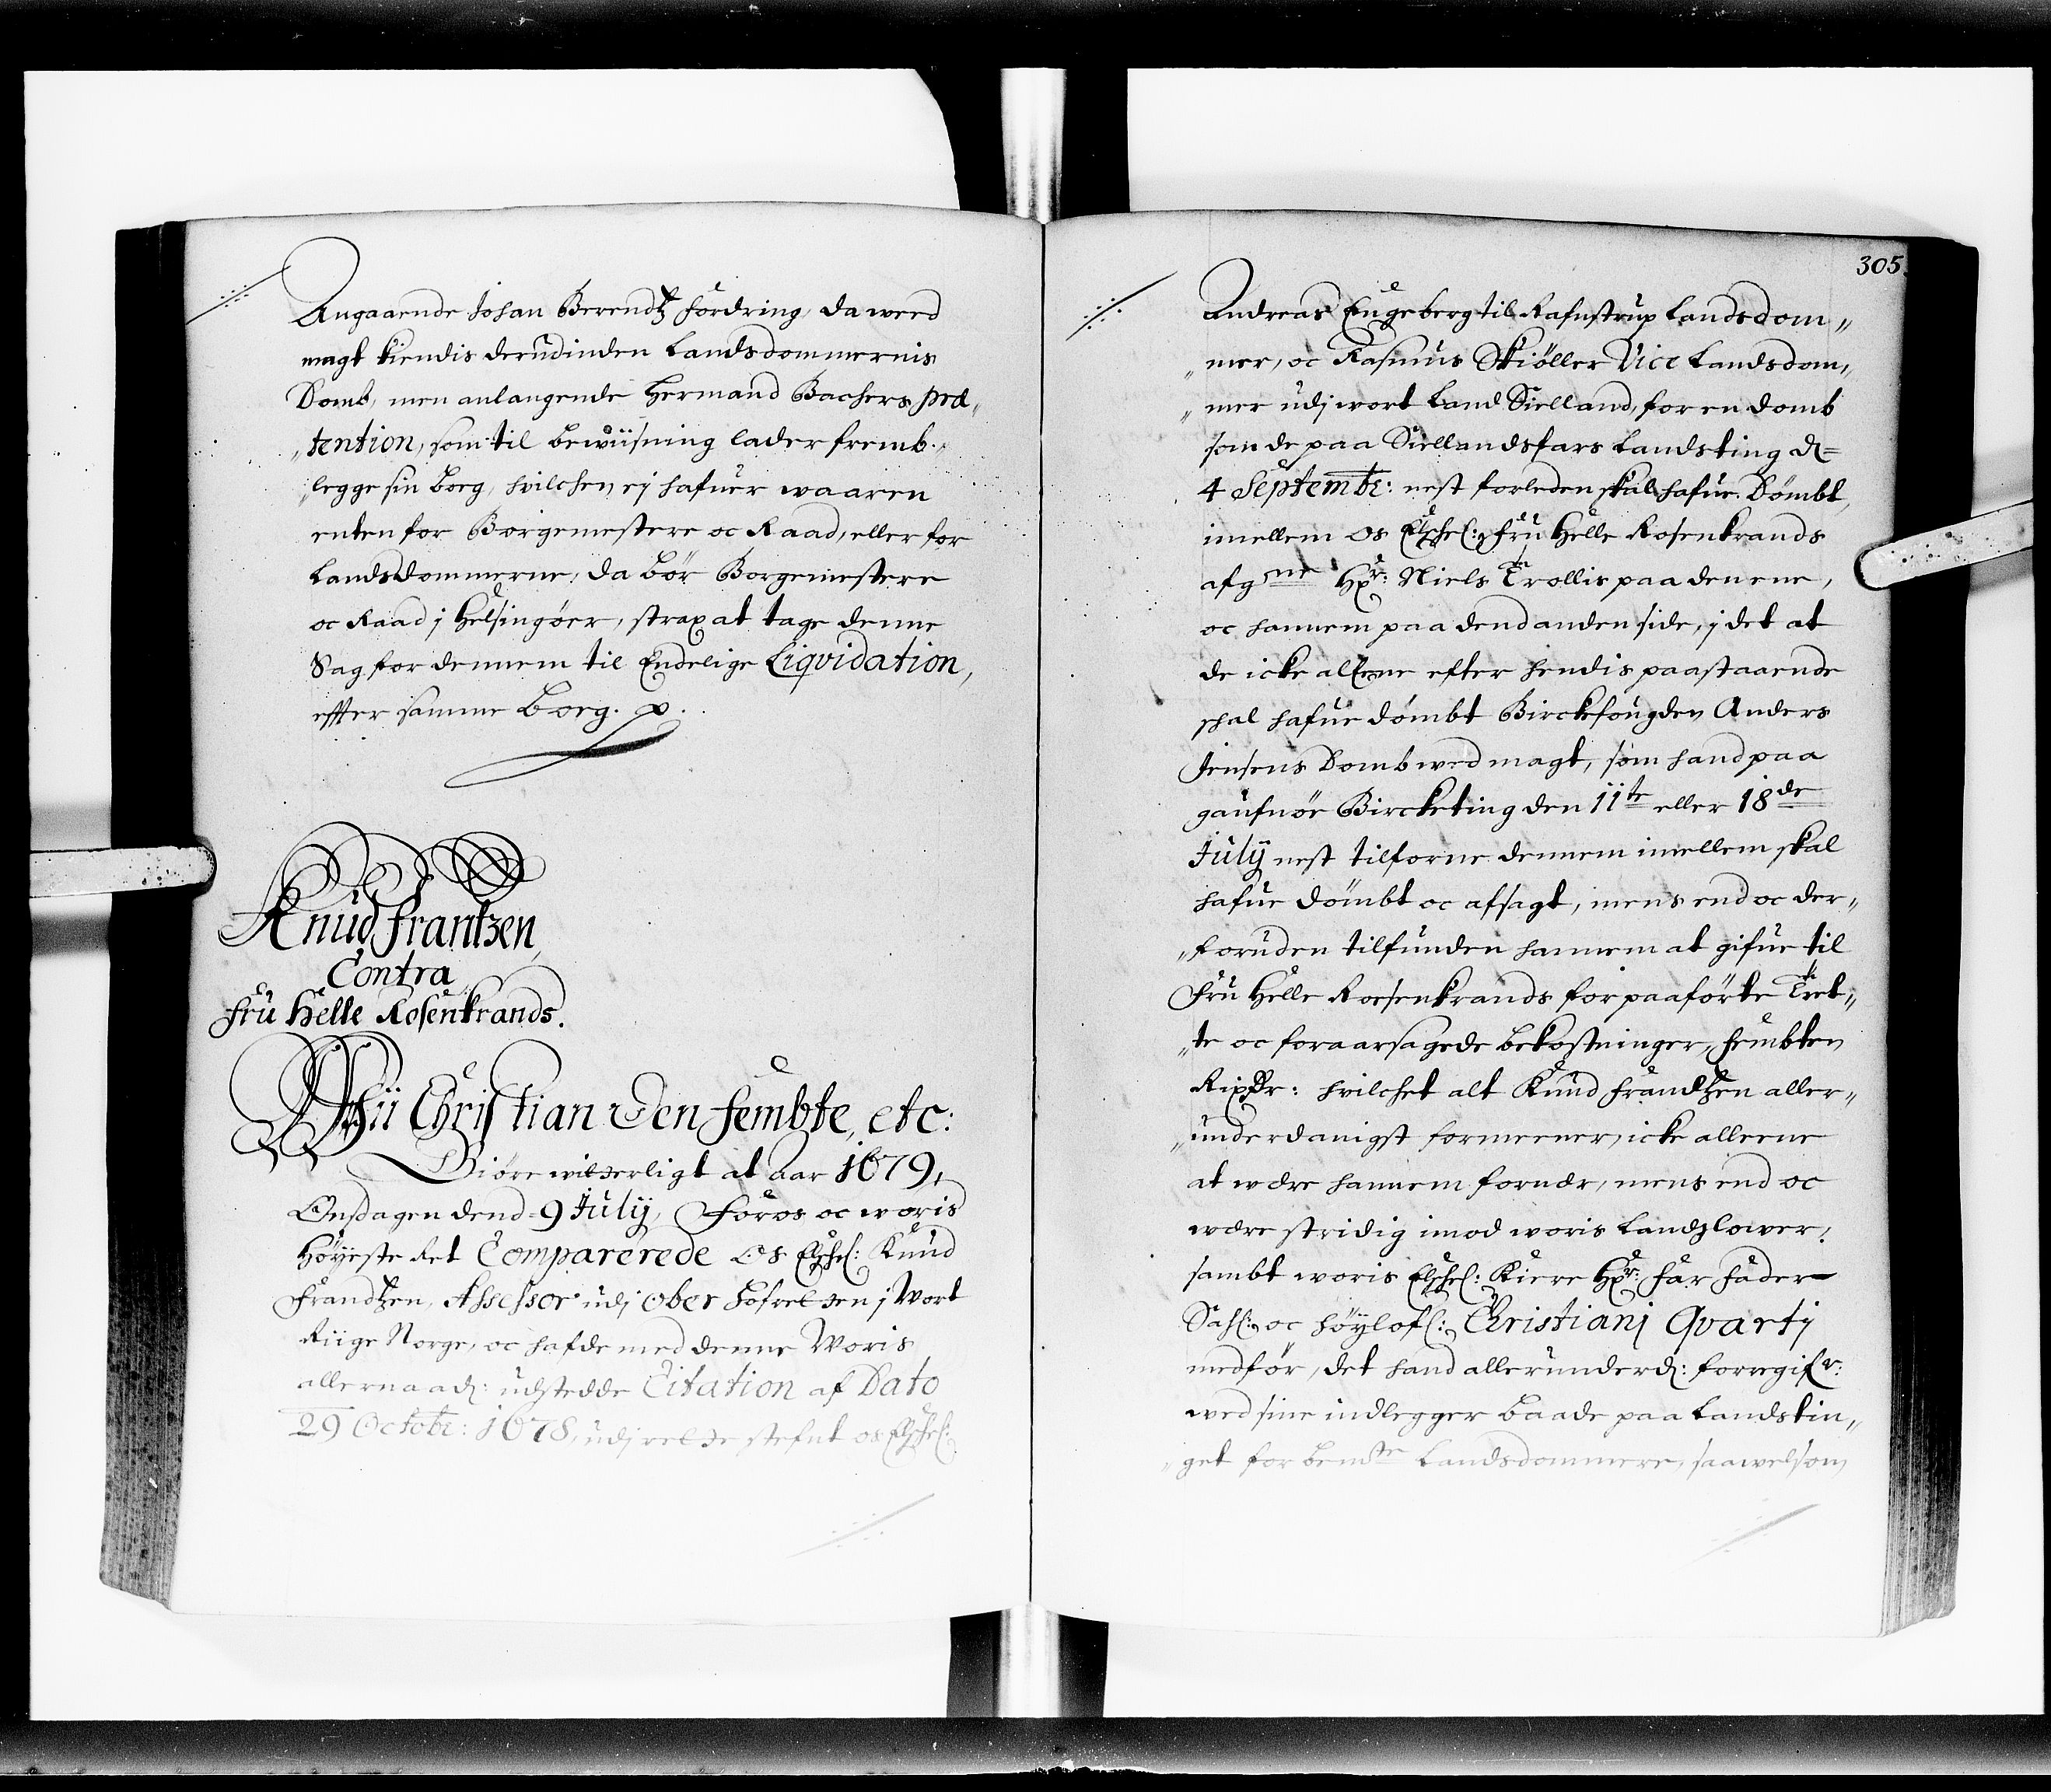 Angaaende Johan Berendtz fordring, da weed
magt kiendis derudinden Landsdommernis
Domb, men anlangende Hermand Bachers præ„
„tention, som til bewiisning lader fremb„
„legge sin boeg, hvilchen ej hafuer waaren
enten for Borgemestere oc Raad, eller for
Landsdommerne, da bör Borgemestere
oc Raad j Helsingøer, strax at tage denne
Sag for dennem til Endelige Liqvidation,
effter samme boeg. p.
Knud Frantzen,
Contra
Fru Helle Rosenkrands.
Wii Christian den Fembte, etc:
Giöre witterligt at aar 1679,
Onsdagen dend 9 July, For os oc woris
Höyeste Ret Comparerede Os Elschel: Knud
Frandtzen, Assessor udj Ober Hofretten j Wort
Riige Norge, oc hafde med denne Woris
allernaad: udstedde Citation af Dato
29 Octobr: 1678, udj rette stefnt os Elschel:
305.
Andreas Engeberg til Rafnstrup Landsdom„
„mer, oc Rasmus Skiöller Vice Landsdom„
„mer udj wort Land Sielland, for en domb
som de paa Siellandsfars Landsting d=
4 Septembr: nest forleden skal hafue Dömbt,
imellem Os Elschel: Fru Helle Rosenkrands
afgne Hr: Niels Trollis paa den ene,
oc hannem paa dend anden side, j det at
de icke alleene efter hendis paastaaende
schal hafue dömbt Birckfougden Anders
Jensens Domb wed magt, som hand paa
gaufnöe Bircketing den 11te eller 18de
July nest tilforne dennem imellem skal
hafue dömbt oc afsagt, mens end oc der„
„foruden tilfunden hannem at gifue til
Fru Helle Roesenkrands for paaförte Tret„
„te oc foraarsagede bekostninger, fembten
Rixdr: hvilchet alt Knud Frandtzen aller„
„underdanigst formeener, icke alleene
at wære hannem fornær, mens end oc
wære stridig imod woris Landzlower,
sambt woris Elschel: Kiere Hr: Far Faders
Sahl: oc höylofl: Christianj Qvartj
medför, det hand allerunderd: foregifr:
wed sine indlegger baade paa Landstin„
„get for bemte Landsdommere, saawelsom